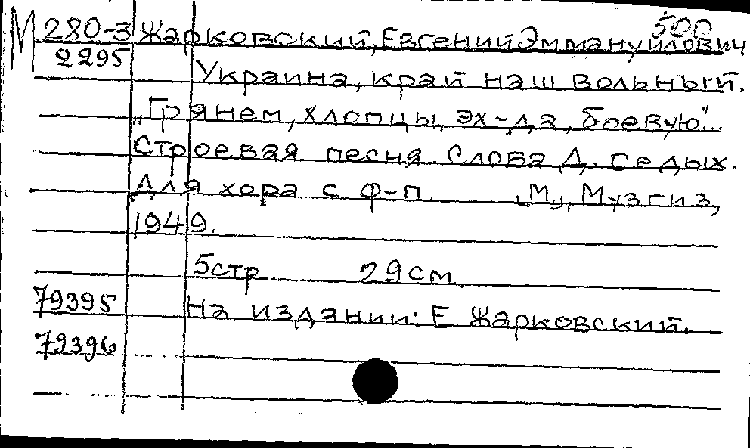 500
М 280-3 Жарковский, Евгений Эммануилович
2295
Украина, край наш вольный.
„Грянем, хлопцы, эх-да, боевую"...
Строевая песня. Слова Д. Седых.
Для хора с ф-п. М., Музгиз,
1949.
5 стр. 29 см.
79395 На издании: Е. Жарковский.
79396